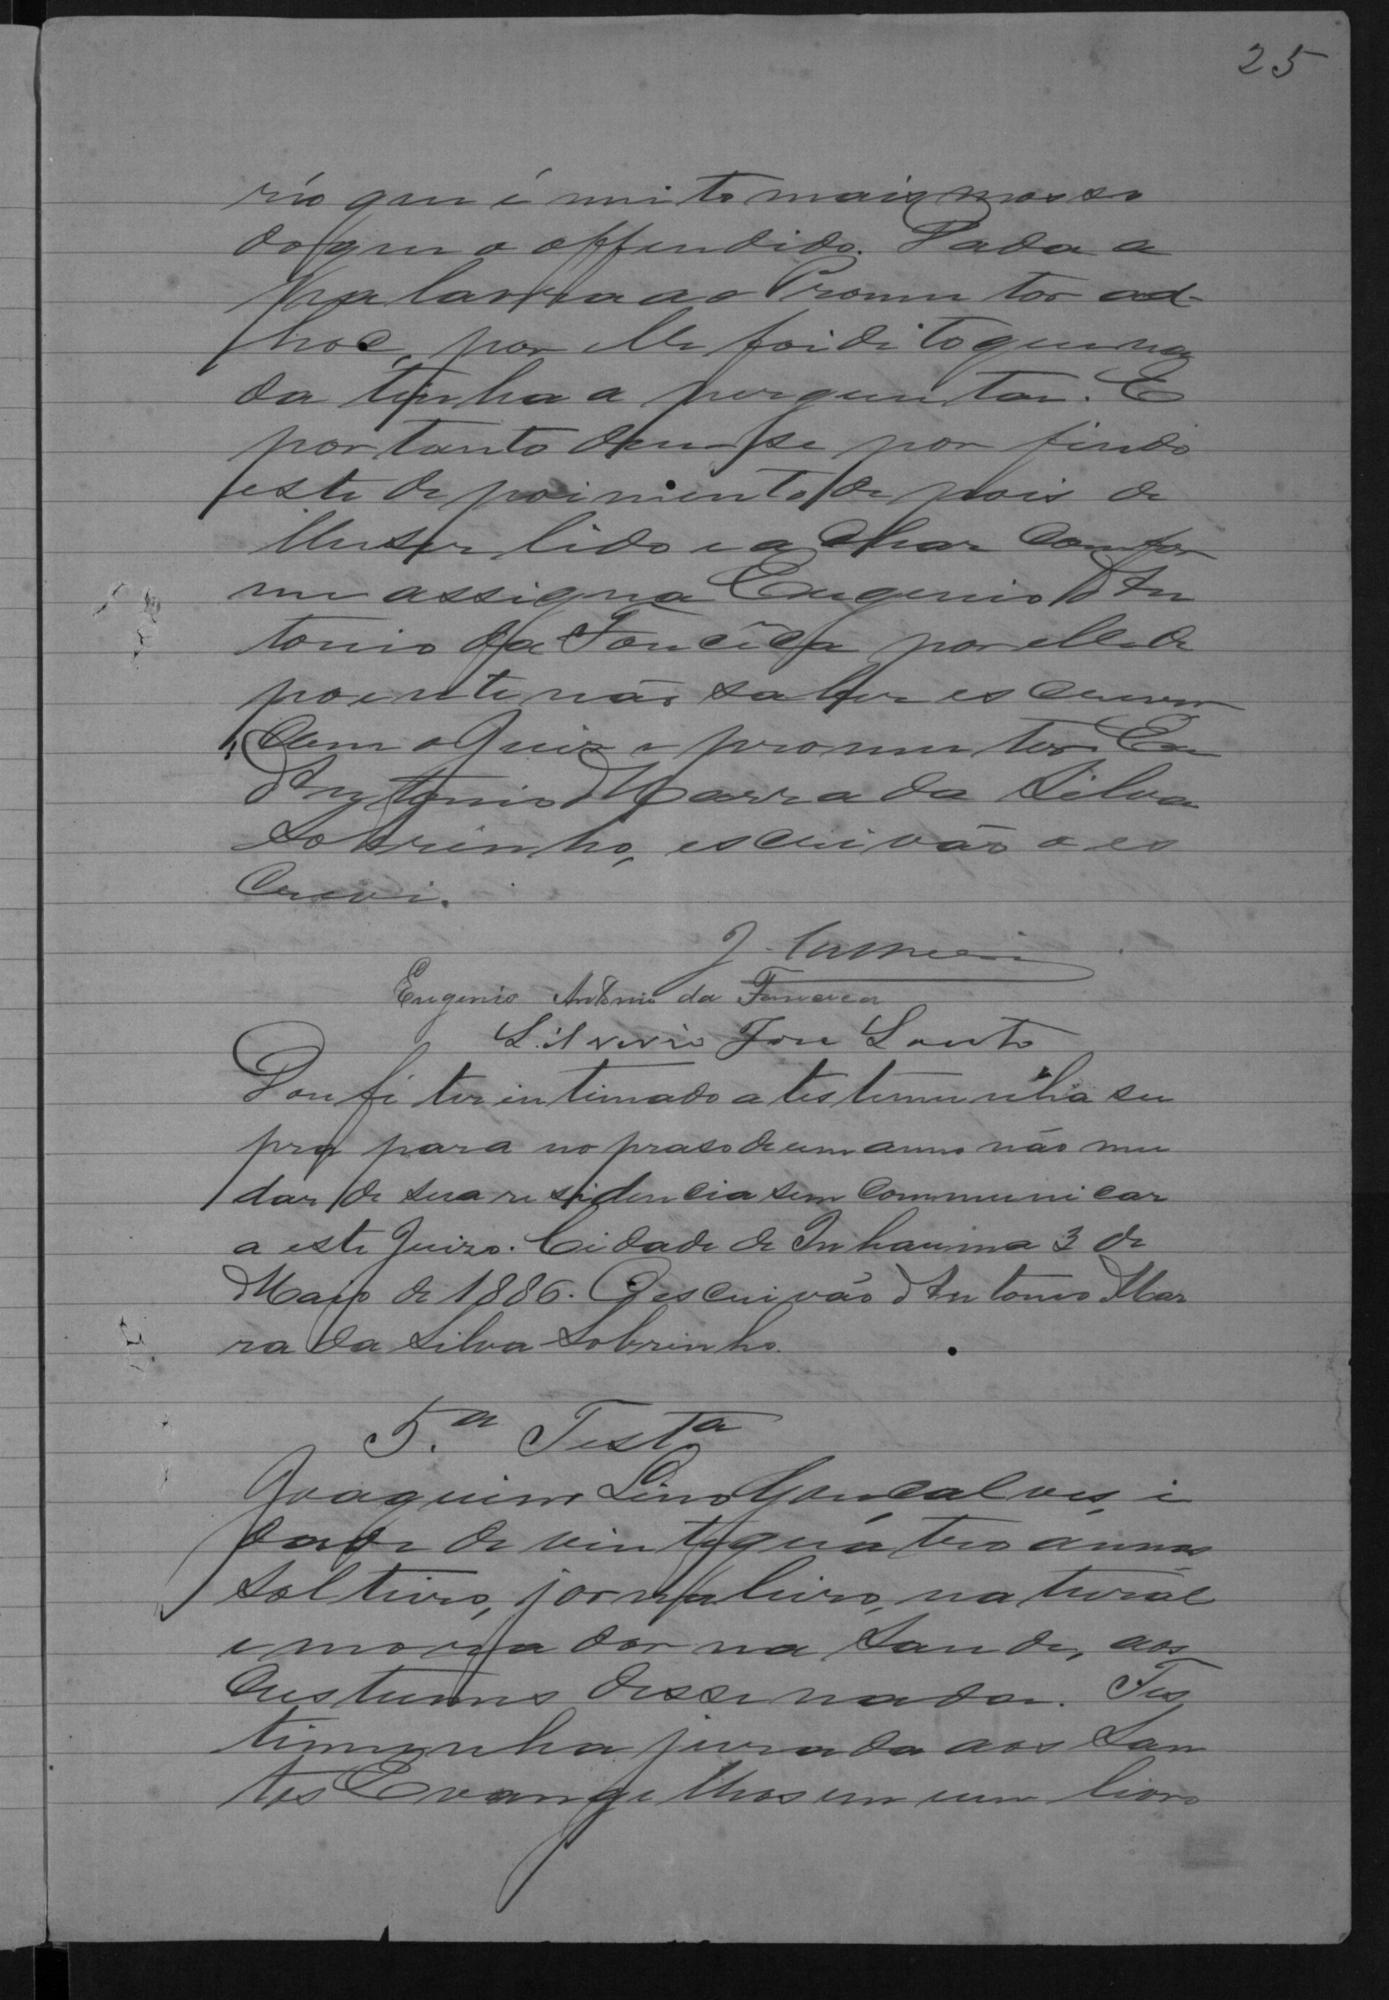 25
rio que é muito mais mosso
do que o offendido. Dada a
palavra ao Promutor ad-
hoc, por elle foi dito que na
da tinha a perguntar. E
portanto deu-se por findo
este depoimento depois de
lhe ser lido e achar confor
me assigna Eugenio An
tonio da Foncêca por elle de
poente não saber escrever
com o Juiz e promutor Eu
Antonio Marra da Silva
Sobrinho, escrivão o es
crevi.
Eugenio Antonio da Fonceca
Silverio José Souto
Dou fé ter intimado a testemunha su
pra para no praso de um anno não mu
dar de sua residencia sem communicar
a este Juizo. Cidade de Inhauma 3 de
Maio de 1886. O escrivão Antonio Mar
ra da Silva Sobrinho.
5.ª Testª
Joaquim Lino Gonçalves, i
dade de vinte quatro annos
solteiro, jornaleiro, natural
e morador na Saude, aos
custumes disse nada. Tes
timunha jurada aos San
tos Evangelhos em um livro